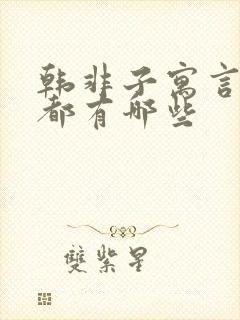 韩非子寓言
都有哪些
雙紫星